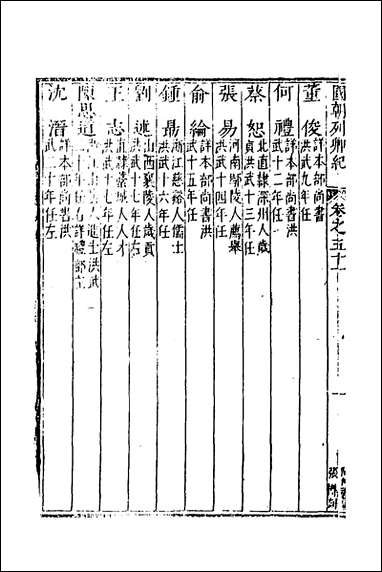 國朝列卿紀 卷之五十一
董俊 詳本部尚書洪武九年任
何禮 詳本部尚書洪武十二年任
蔡恕 北直隸深州人歲貢洪武十三年任
張易 河南鄢陵人薦舉洪武十四年任
俞綸 詳本部尚書洪武十五年任
鍾鼎 浙江慈谿人儒士洪武十六年任
劉逑 山西襄陵人歲貢洪武十七年任左
王志 直隸藁城人人才洪武十七年任左
陳思道 人進士洪武 十年任右詳禮部
沈溍 詳本部尚書洪武二十年任左